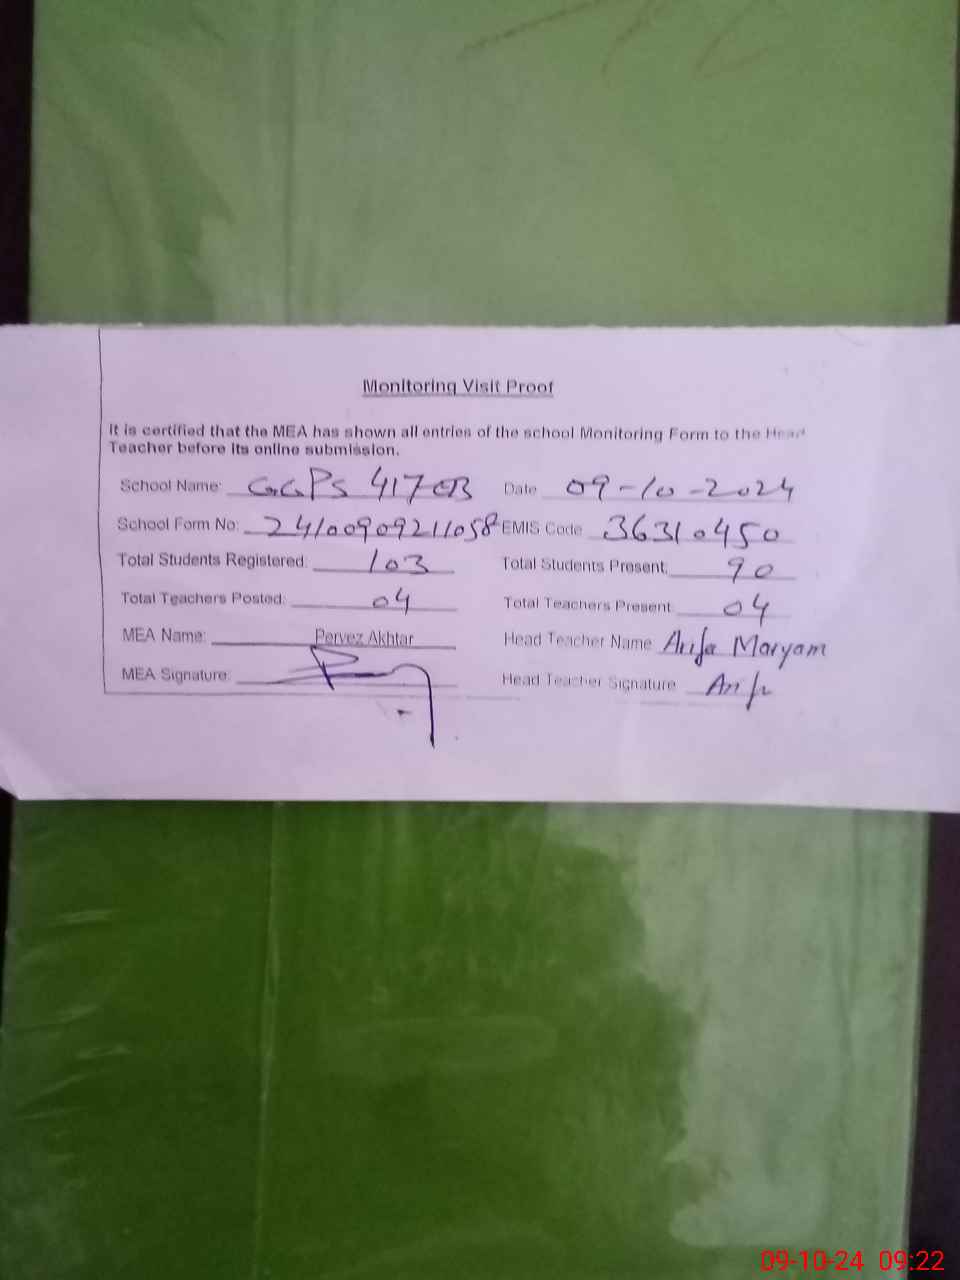 Monitoring Visit Proof
It is certified that the MEA has shown all entries of the school Monitoring Form to the Head
Teacher before its online submission.
School Name: GGPS 417 EB Date 09-10-2024
School Form No: 24100909211058 EMIS Code 36310450
Total Students Registered: 103 Total Students Present: 90
Total Teachers Posted: 04 Total Teachers Present 04
MEA Name: Pervez Akhtar Head Teacher Name Arifa Maryam
MEA Signature: Head Teacher Signature Arifa
09-10-24 09:22